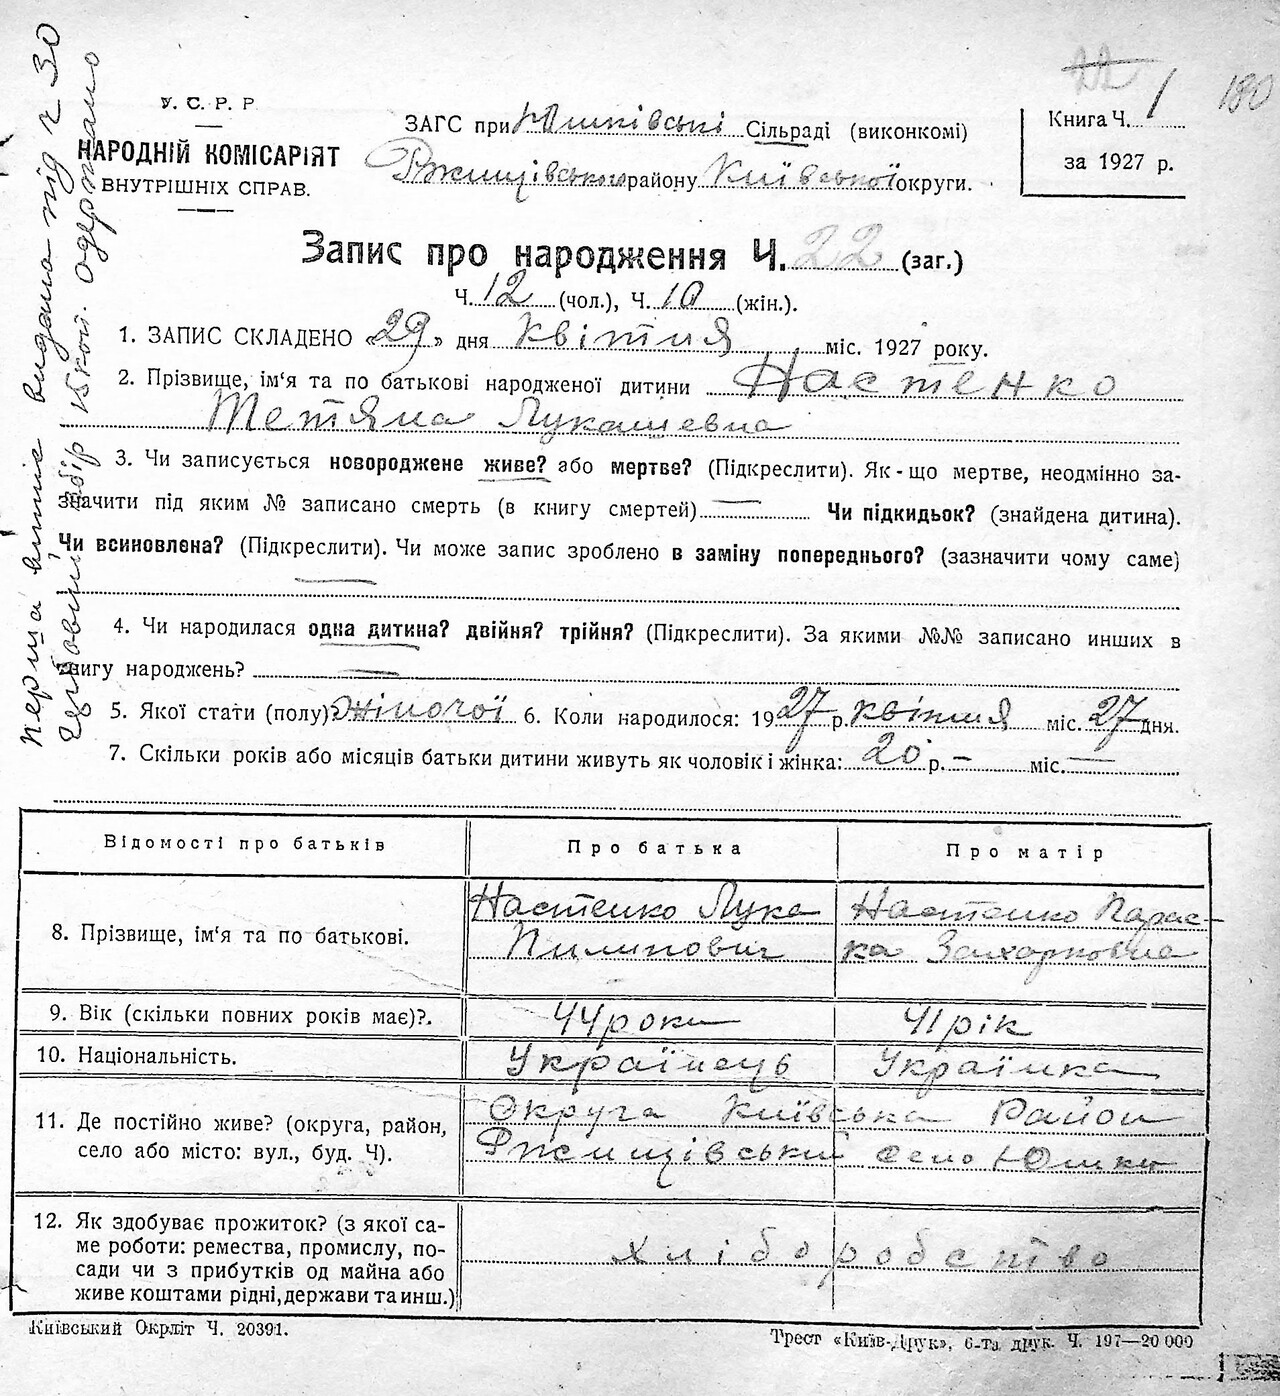 22 1 180
У. С. Р. Р
НАРОДНІЙ КОМІСАРІЯТ
ВНУТРІШНІХ СПРАВ.
ЗАГС при Юшківські Сільраді (виконкомі)
Ржищівського району Київської округи.
Книга Ч. 1
за 1927 р.
Запис про народження Ч. 22 (заг.)
Ч. 12 (чол.), Ч. 10 (жін.).
1. ЗАПИС СКЛАДЕНО «29» дня квітня міс. 1927 року.
2. Прізвище, ім‘я та по батькові народженої дитини Настенко
Тетяна Лукашевна
3. Чи записується новороджене живе? або мертве? (Підкреслити). Як-що мертве, неодмінно за-
значити під яким № записано смерть (в книгу смертей) — Чи підкидьок? (знайдена дитина).
Чи всиновлена? (Підкреслити). Чи може запис зроблено в заміну попереднього? (зазначити чому саме)
—
4. Чи народилася одна дитина? двійня? трійня? (Підкреслити). За якими №№ записано инших в
книгу народжень? —
5. Якої стати (полу)? жіночої 6. Коли народилося: 1927 р. квітня міс. 27 дня.
7. Скільки років або місяців батьки дитини живуть як чоловік і жінка: 20 р. — міс. —
Відомості про батьків Про батька Про матір
8. Прізвище, ім‘я та по батькові. Настенко Лука Пилипович Настенко Парас-
ка Захарковна
9. Вік (скільки повних років має)?. 44 роки 41 рік
10. Національність. Українець Українка
11. Де постійно живе? (округа, район,
село або місто: вул., буд. Ч). Округа Київська Район
Ржищівський село Юшки
12. Як здобуває прожиток? (з якої са-
ме роботи: ремества, промислу, по-
сади чи з прибутків од майна або
живе коштами рідні, держави та инш.) хліборобство
Київський Окрліт Ч. 20391.
Трест «Київ-Друк», 6-та друк. Ч. 197—20 000
Перша випис видана під ч 30
збір коп. одержано